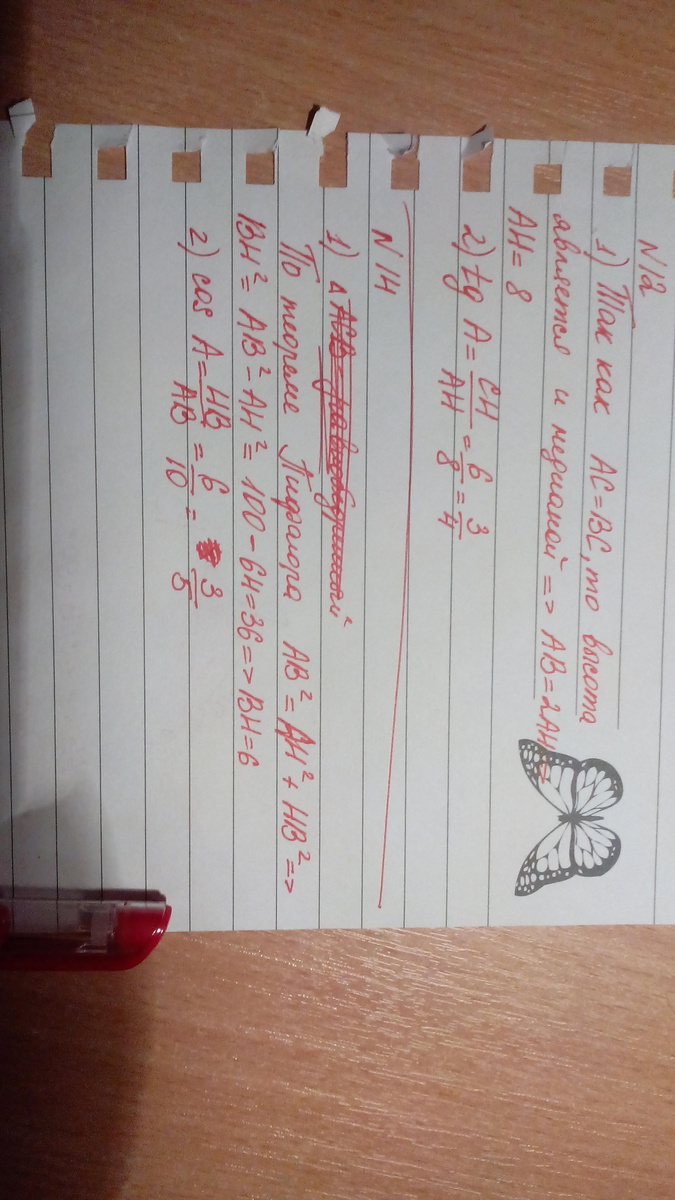 N12
1) Так как AC=BC, то высота
является и медианой => AB=2AH =>
AH=8
2) tg A = CH/AH = 6/8 = 3/4
N14
1) Δ
По теореме Пифагора AB² = AH² + HB² =>
BH² = AB² - AH² = 100 - 64 = 36 => BH = 6
2) cos A = HB/AB = 6/10 = 3/5